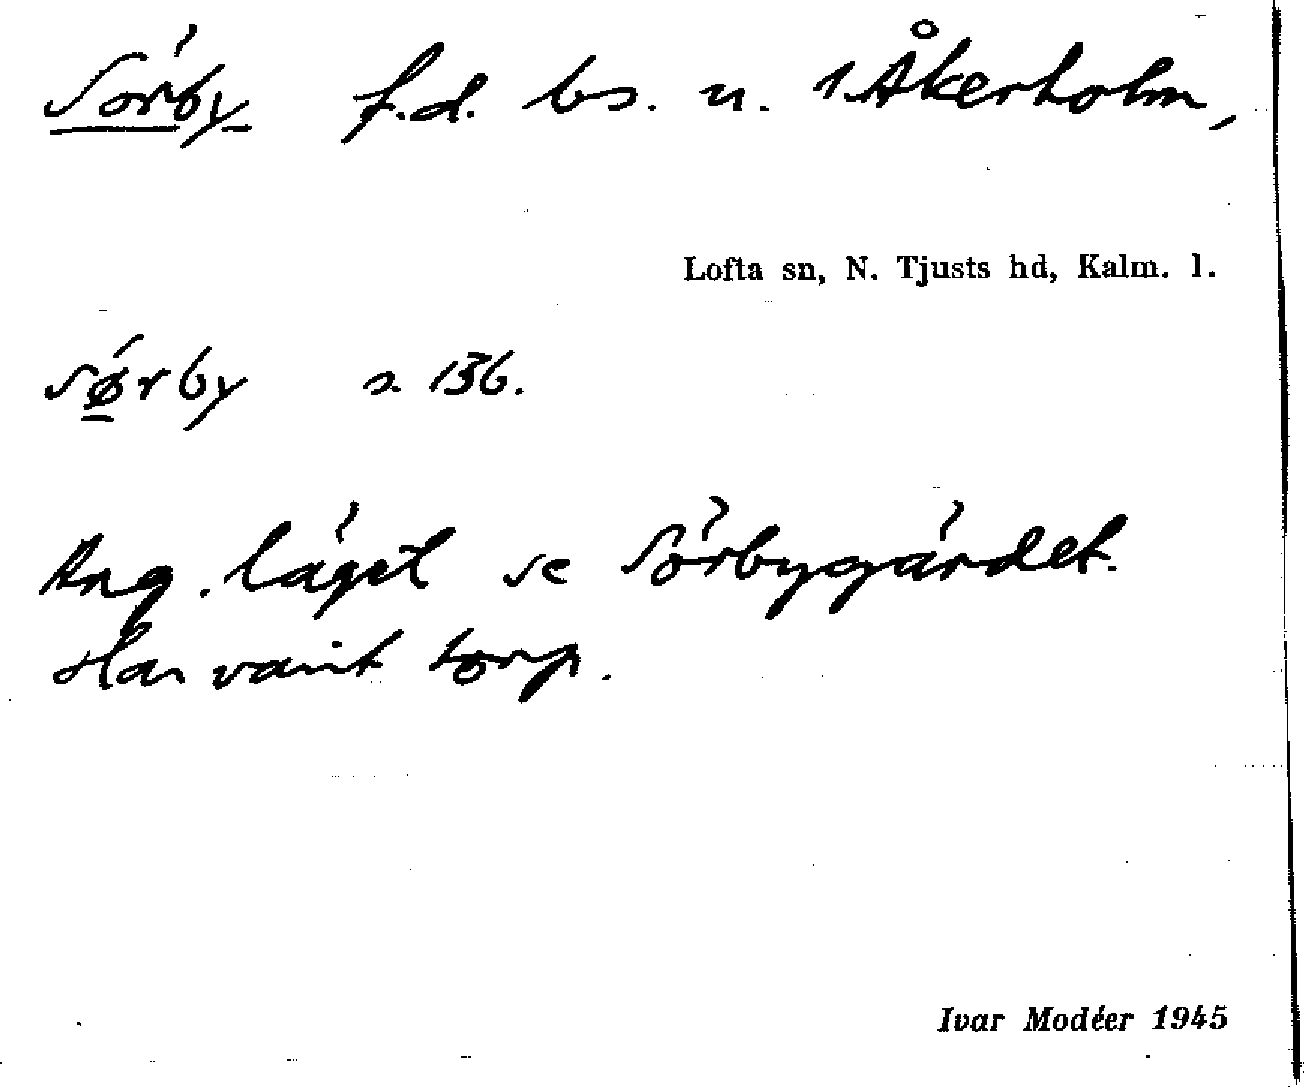 Sörby f.d. bs. u. 1 Åkerholm,
Lofta sn, N. Tjusts hd, Kalm. l.
sørby 2 136.
Ang. läget se Sörbygärdet.
Har varit torp.
Ivar Modéer 1945